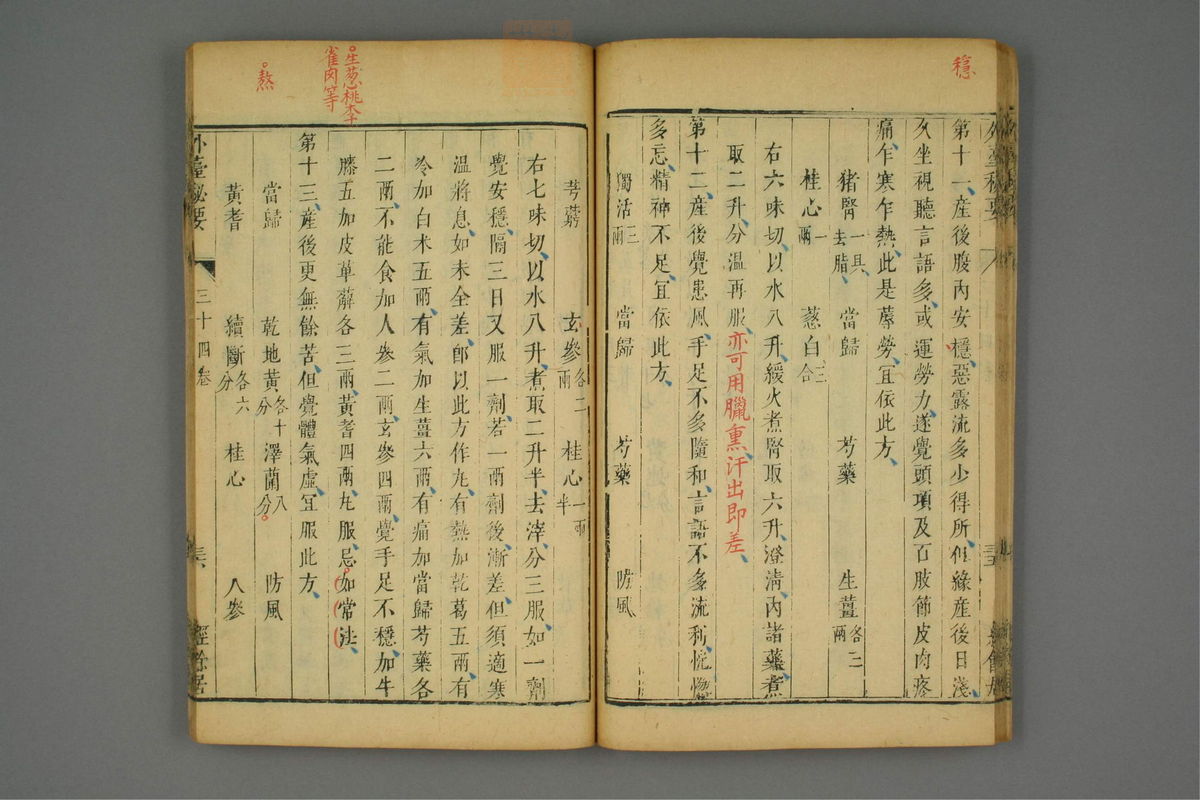 穩
第十一、産後腹內安穩、惡露流多少得所、但緣産後日淺、
久坐視聽言語多、或運勞力、遂覺頭項及百肢節皮肉疼
痛、乍寒乍熱、此是蓐勞、宜依此方、
猪腎一具去脂、 當歸 芍藥 生薑各二兩
桂心一兩 葱白三合
右六味切、以水八升、緩火煮腎取六升、澄清、內諸藥、煮
取二升、分溫再服、亦可用臘熏汗出即差、
第十二、産後覺患風、手足不多隨和、言語不多流利、恍惚
多忘、精神不足、宜依此方、
獨活三兩 當歸 芍藥 防風
芎藭 玄參各二兩 桂心一兩半
右七味切、以水八升、煮取二升半、去滓、分三服、如一劑
覺安穩、隔三日又服一劑、若一兩劑後、漸差、但須適寒
溫將息、如未全差、郎以此方作丸、有熱加乾葛五兩、有
冷加白朮五兩、有氣加生薑六兩、有痛加當歸芍藥各
二兩、不能食加人參二兩、玄參四兩、覺手足不穩、加牛
膝五加皮萆薢各三兩、黃耆四兩、丸服、忌如常法、
第十三、産後更無餘苦、但覺體氣虛、宜服此方、
當歸 乾地黃各十分 澤蘭八分 防風
黃耆 續斷各六分 桂心 人參
外臺秘要 三十四卷 經餘居
生葱桃李
雀肉等
熬